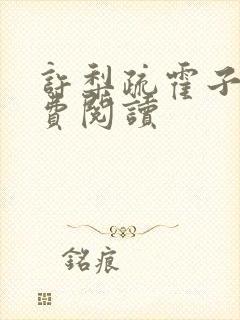 許梨疏霍子
費閱讀
銘痕